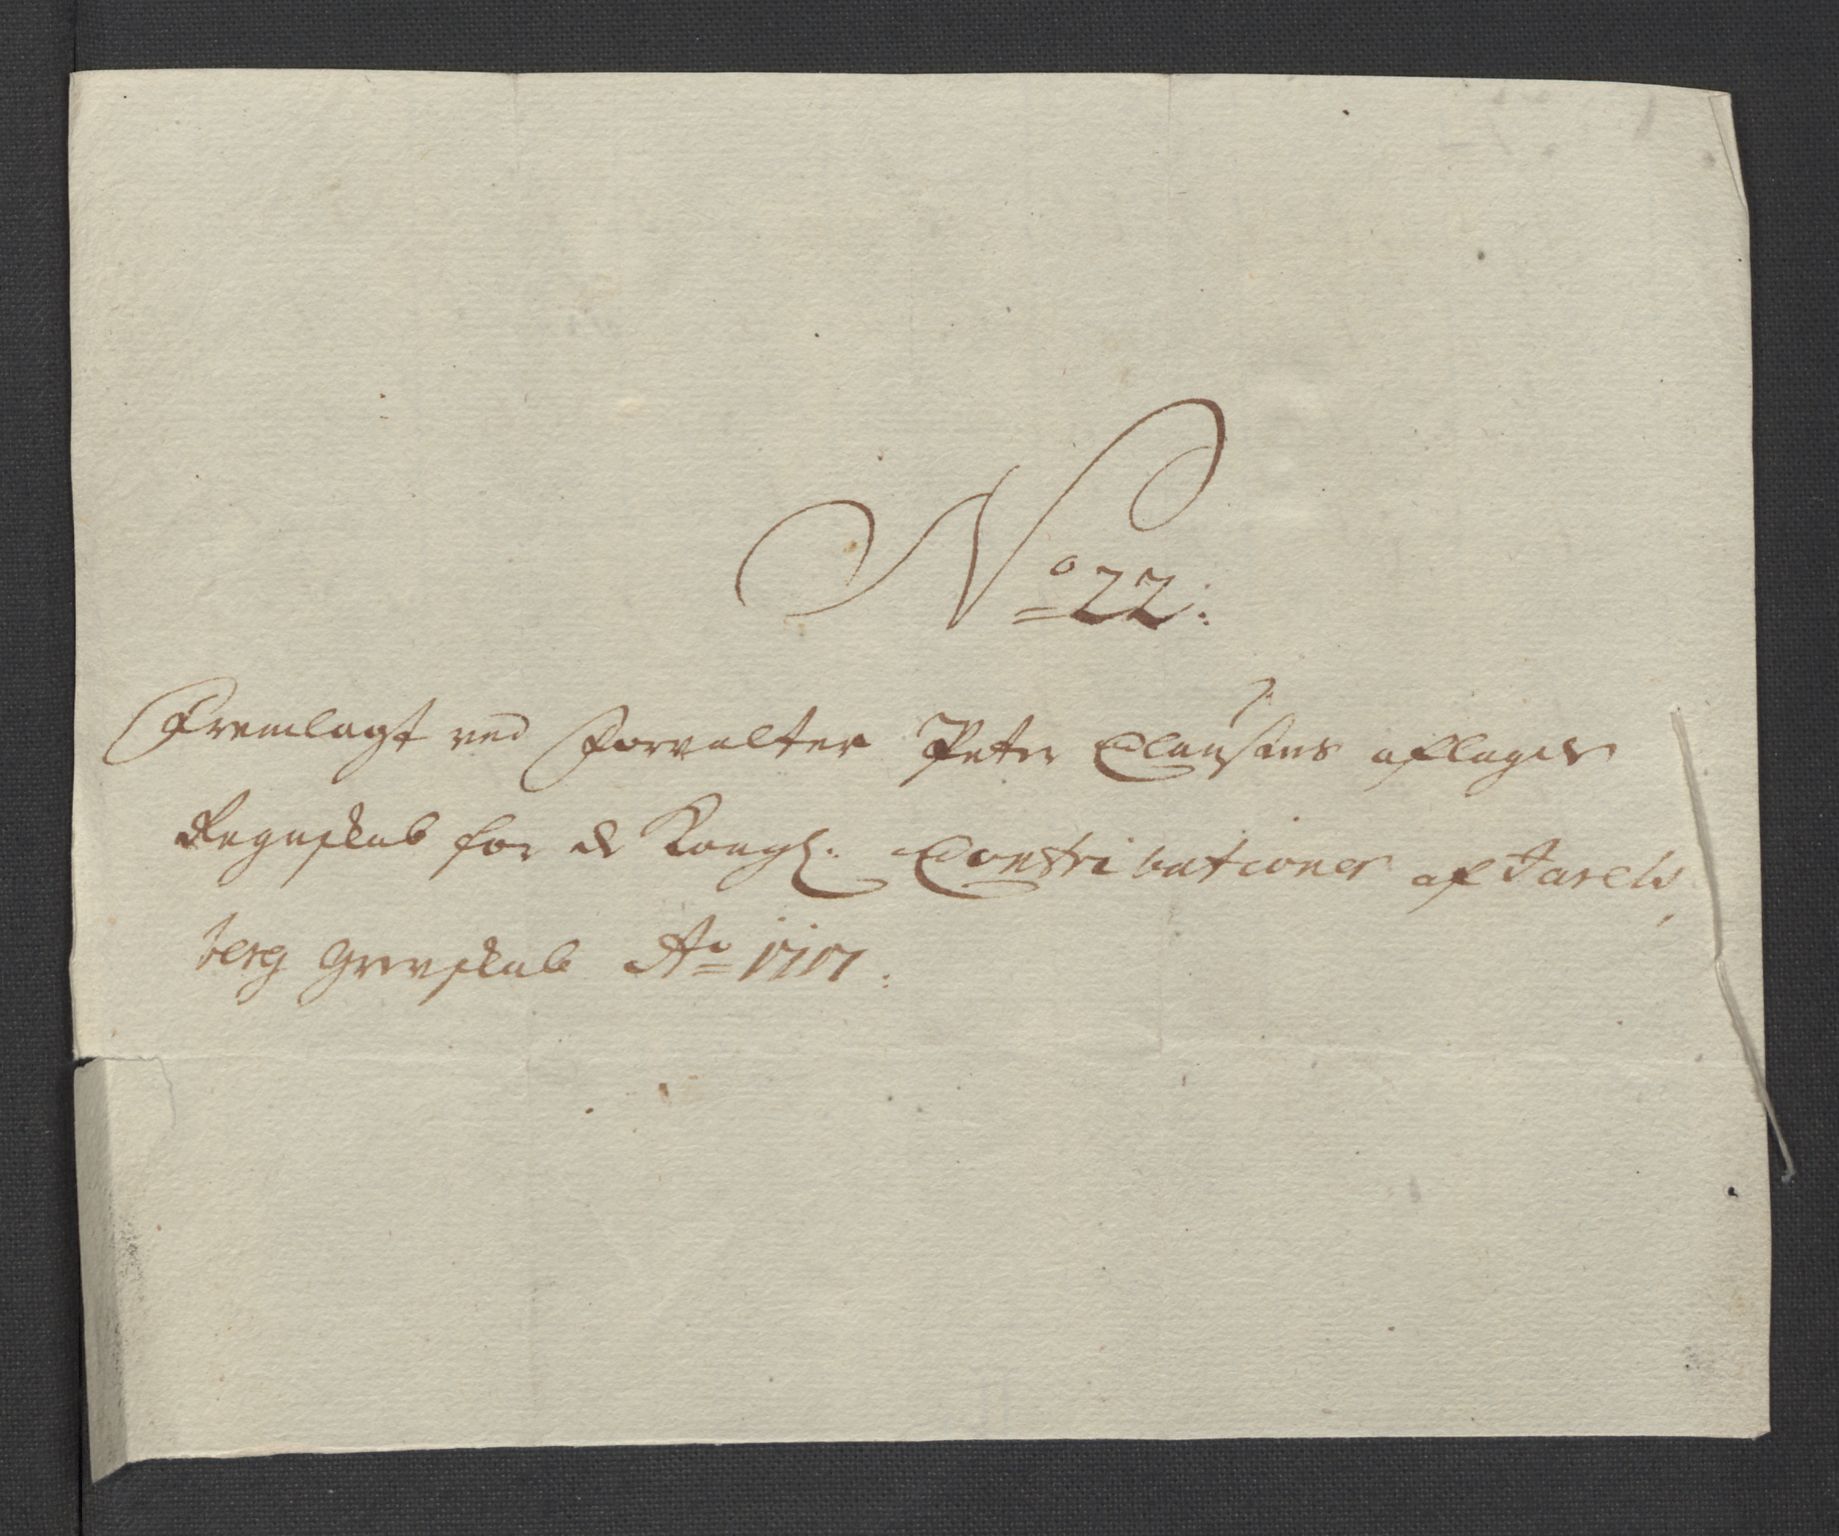 No 22:
Fremlagt ved Forvalter Peter Clausens aflagde
Regnskab for de Kongl: Contributioner af Jarels,
berg Grevskab Ao 1717: